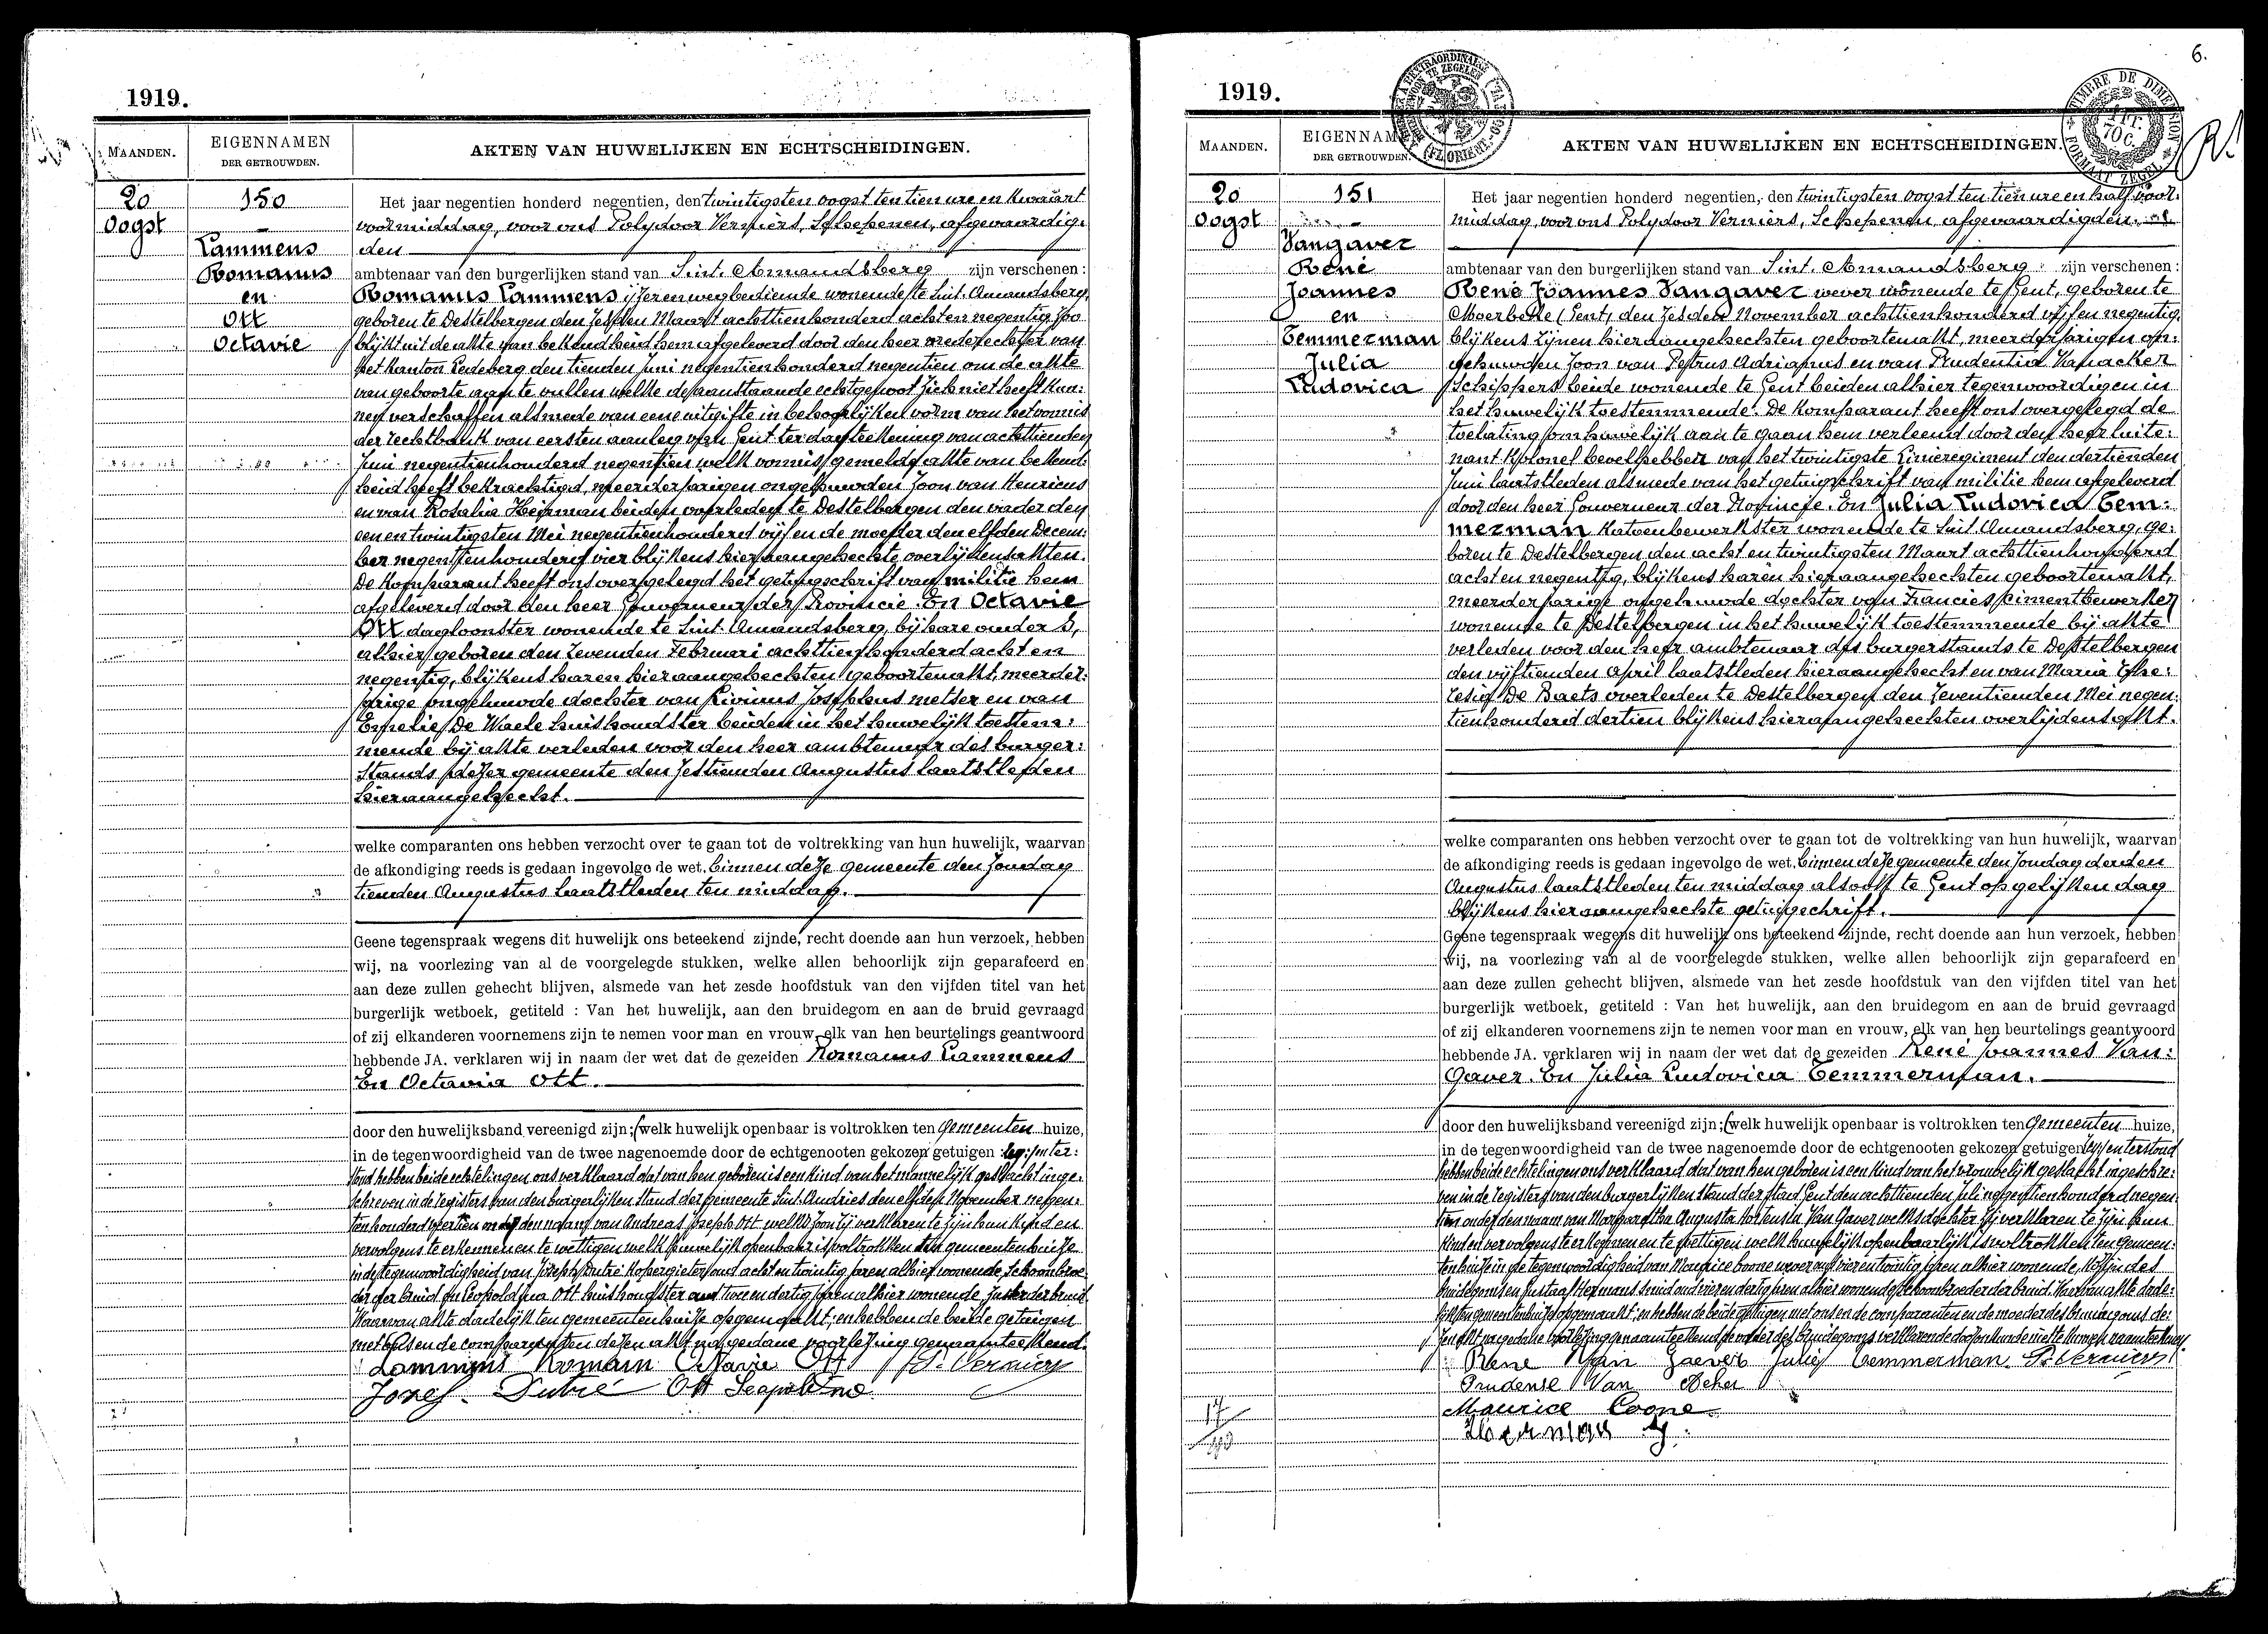 1919.
MAANDEN.
EIGENNAMEN
DER GETROUWDEN.
AKTEN VAN HUWELIJKEN EN ECHTSCHEIDINGEN.
20
Oogst
150
Lammens
Romanus
en
Ott
Octavie
Het jaar negentien honderd negentien, den twintigsten oogst ten tien ure en kwaart
voormiddag, voor ons Polydoor Verniers, Schepenen, afgevaardig-
den
ambtenaar van den burgerlijken stand van Sint. Amandsberg zijn verschenen:
Romanus Lammens ijzerenwegbediende wonende te Sint. Amandsberg,
geboren te Destelbergen den zesden Maart achttienhonderd acht en negentig zoo
blijkt uit de akte van bekendheid hem afgeleverd door den heer vrederechter van
het kanton Ledeberg den tienden Juni negentienhonderd negentien om de akte
van geboorte aan te vullen welke de aanstaande echtgenoot zich niet heeft kun:
nen verschaffen alsmede van eene uitgifte in behoorlijken vorm van het vonnis
der rechtbank van eersten aanleg van Gent ter dagteekening van achttienden
Juni negentienhonderd negentien welk vonnis gemelde akte van bekend:
heid heeft bekrachtigd, meerderjarigen ongehuwden zoon van Henricus
en van Rosalia Heirman beiden overleden te Destelbergen den vader den
een en twintigsten Mei negentienhonderd vijf en de moeder den elfden Decem:
ber negentienhonderd vier blijkens hieraangehechte overlijdensakten.
De komparant heeft ons overgelegd het getuigschrift van militie hem
afgeleverd door den heer Gouverneur der Provincie. En Octavie
Ott dagloonster wonende te Sint. Amandsberg, bij hare ouders,
alhier geboren den zevenden Februari achttienhonderd acht en
negentig, blijkens haren hieraangehechten geboortenakt, meerder:
jarige ongehuwde dochter van Livinus Josephus metser en van
Emelie De Waele huishoudster beiden in het huwelijk toestem:
mende bij akte verleden voor den heer ambtenaar des burger:
stands dezer gemeente den zestienden Augustus laatstleden
hieraangehecht.
welke comparanten ons hebben verzocht over te gaan tot de voltrekking van hun huwelijk, waarvan
de afkondiging reeds is gedaan ingevolge de wet, binnen deze gemeente den zondag
tienden Augustus laatstleden ten middag.
Geene tegenspraak wegens dit huwelijk ons beteekend zijnde, recht doende aan hun verzoek, hebben
wij, na voorlezing van al de voorgelegde stukken, welke allen behoorlijk zijn geparafeerd en
aan deze zullen gehecht blijven, alsmede van het zesde hoofdstuk van den vijfden titel van het
burgerlijk wetboek, getiteld : Van het huwelijk, aan den bruidegom en aan de bruid gevraagd
of zij elkanderen voornemens zijn te nemen voor man en vrouw, elk van hen beurtelings geantwoord
hebbende JA. verklaren wij in naam der wet dat de gezeiden Romanus Lammens
En Octavia Ott.
door den huwelijksband vereenigd zijn; (welk huwelijk openbaar is voltrokken ten gemeenten huize,
in de tegenwoordigheid van de twee nagenoemde door de echtgenooten gekozen getuigen
stond hebben beide echtelingen ons verklaard dat van hen geboren is een kind van het mannelijk geslacht inge:
schreven in de registers van den burgerlijken stand der gemeente Sint. Andries den elfden November negen:
tienhonderd veertien onder den naam van Andreas Joseph Ott welks zoon zij verklaren te zijn hun kind en
vervolgens te erkennen en te wettigen welk huwelijk openbaar is voltrokken ten gemeentenhuize
in de tegenwoordigheid van Joseph Dutré kopergieter oud acht en twintig jaren alhier wonende, schoonbroe-
der der bruid en Leopoldina Ott huishoudster oud twee en dertig jaren alhier wonende, zuster der bruid
Waarvan akte dadelijk ten gemeentenhuize opgemaakt; en hebben de beide getuigen
met ons en de comparanten dezen akt na gedane voorlezing genaamteekend.
Lammens Romain Octavie Ott P. Verniers
Jozef Dutré Ott Leopoldine
6.
1919.
TIMBRE DE DIMENSION
70 C.
FORMAAT ZEGEL
MAANDEN.
EIGENNAMEN
DER GETROUWDEN.
AKTEN VAN HUWELIJKEN EN ECHTSCHEIDINGEN.
20
Oogst
151
Vangaver
René
Joannes
en
Temmerman
Julia
Ludovica
Het jaar negentien honderd negentien, den twintigsten oogst ten tien ure en half voor:
middag, voor ons Polydoor Verniers, Schepenen afgevaardigden
ambtenaar van den burgerlijken stand van Sint. Amandsberg zijn verschenen:
René Joannes Vangaver wever wonende te Gent, geboren te
Moerbeke (Gent) den zesden November achttienhonderd vijf en negentig
blijkens zijnen hieraangehechten geboortenakt, meerderjarigen on:
gehuwden zoon van Petrus Adrianus en van Prudentia Vanacker
schippers beide wonende te Gent beiden alhier tegenwoordig en in
het huwelijk toestemmende. De komparant heeft ons overgelegd de
toelating om huwelijk aan te gaan hem verleend door den heer luite:
nant kolonel bevelhebber van het twintigste Linieregiment den dertienden
Juni laatstleden alsmede van het getuigschrift van militie hem afgeleverd
door den heer Gouverneur der Provincie. En Julia Ludovica Tem:
merman katoenbewerkster wonende te Sint. Amandsberg, ge:
boren te Destelbergen den acht en twintigsten Maart achttienhonderd
acht en negentig, blijkens haren hieraangehechten geboortenakt,
meerderjarige ongehuwde dochter van Francies cimentbewerker
wonende te Destelbergen in het huwelijk toestemmende bij akte
verleden voor den heer ambtenaar des burgerstands te Destelbergen
den vijftienden April laatstleden hieraangehecht en van Maria The:
resia De Baets overleden te Destelbergen den zeventienden Mei negen:
tienhonderd dertien blijkens hieraangehechten overlijdensakt.
welke comparanten ons hebben verzocht over te gaan tot de voltrekking van hun huwelijk, waarvan
de afkondiging reeds is gedaan ingevolge de wet, binnen deze gemeente den zondag derden
Augustus laatstleden ten middag alsook te Gent op gelijken dag
blijkens hieraangehechte getuigschrift.
Geene tegenspraak wegens dit huwelijk ons beteekend zijnde, recht doende aan hun verzoek, hebben
wij, na voorlezing van al de voorgelegde stukken, welke allen behoorlijk zijn geparafeerd en
aan deze zullen gehecht blijven, alsmede van het zesde hoofdstuk van den vijfden titel van het
burgerlijk wetboek, getiteld : Van het huwelijk, aan den bruidegom en aan de bruid gevraagd
of zij elkanderen voornemens zijn te nemen voor man en vrouw, elk van hen beurtelings geantwoord
hebbende JA. verklaren wij in naam der wet dat de gezeiden René Joannes Van:
Gaver. En Julia Ludovica Temmerman.
door den huwelijksband vereenigd zijn; (welk huwelijk openbaar is voltrokken ten gemeenten huize,
in de tegenwoordigheid van de twee nagenoemde door de echtgenooten gekozen getuigen en terstond
hebben beide echtelingen ons verklaard dat van hen geboren is een kind van het vrouwelijk geslacht ingeschre:
ven in de registers van den burgerlijken stand der stad Gent den achttienden Juli negentienhonderd negen:
tien onder den naam van Margaretha Augusta Hortensia Van Gaver welks dochter zij verklaren te zijn hun
kind en vervolgens te erkennen en te wettigen welk huwelijk openbaarlijk is voltrokken ten gemeen:
tenhuize in de tegenwoordigheid van Maurice Coone wever oud vier en twintig jaren alhier wonende, kozijn des
bruidegoms en Gustaaf Hermans smid oud vier en dertig jaren alhier wonende schoonbroeder der bruid. Waarvan akte dade:
lijk ten gemeentenhuize opgemaakt; en hebben de beide getuigen met ons en de comparanten en de moeder des bruidegoms de:
zen akt na gedane voorlezing genaamteekend, de vader des bruidegoms verklarende
Rene Van Gaever Julie Temmerman P. Verniers
Prudense Van Acker
Maurice Coone
Hermans G.
17